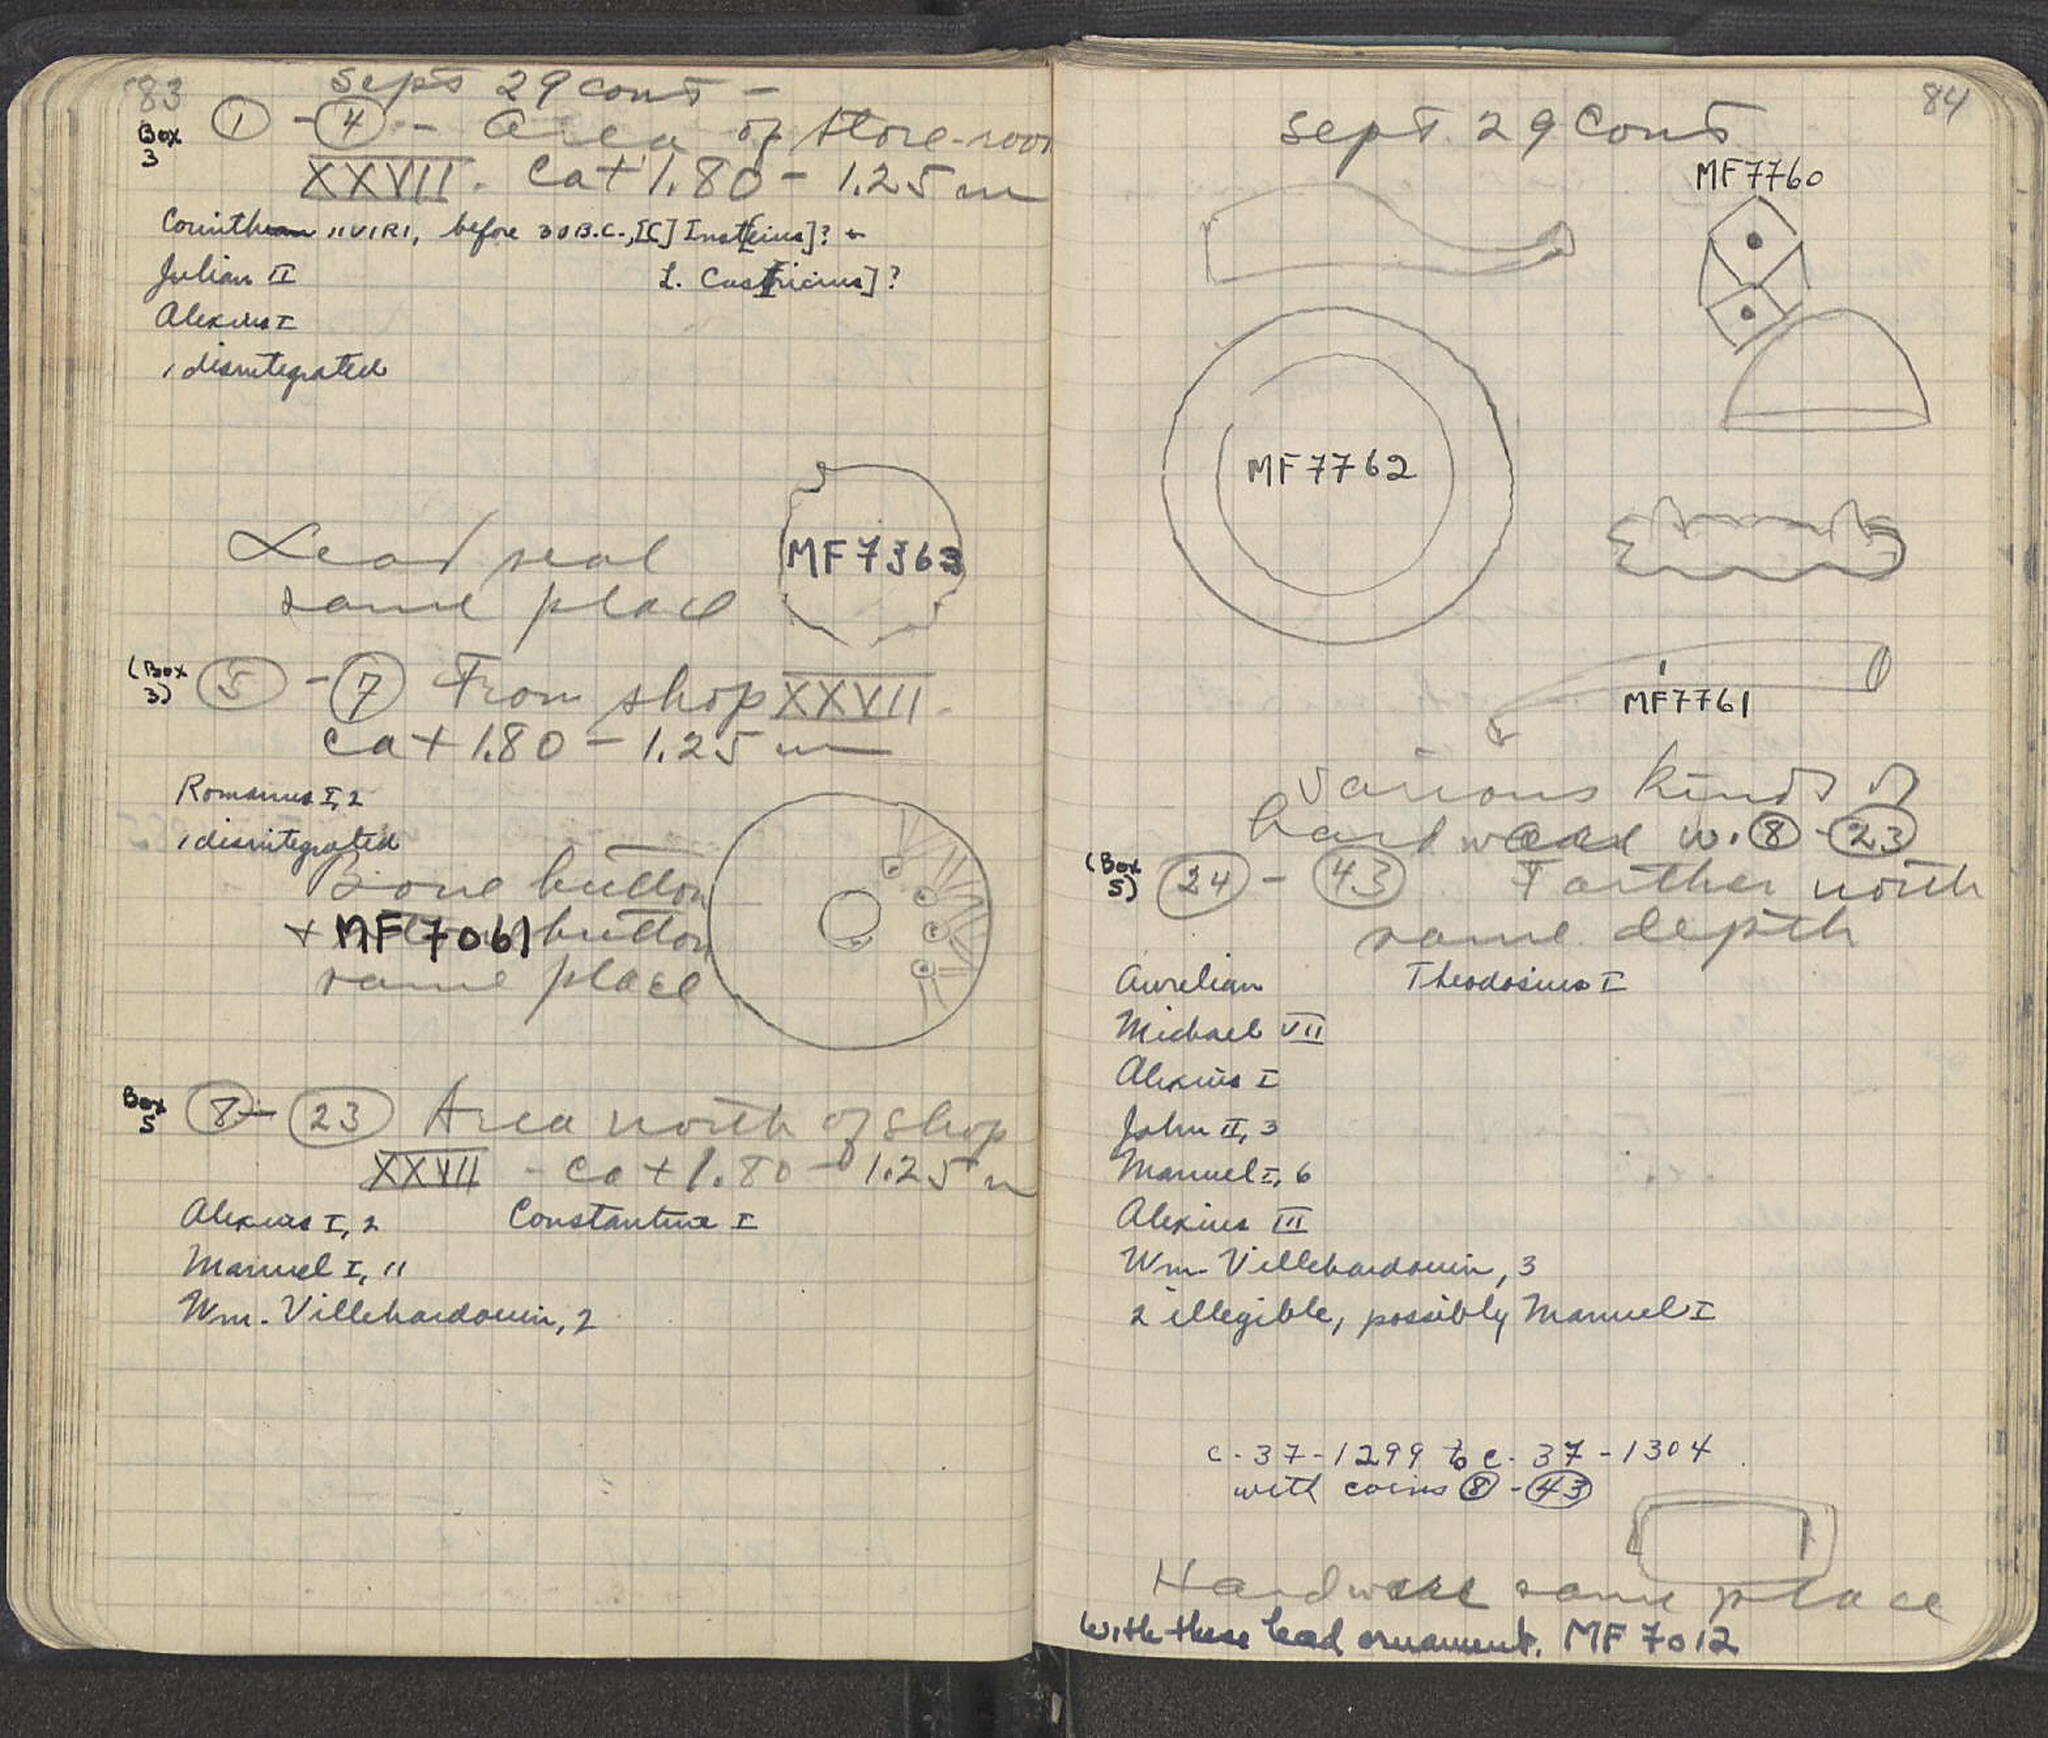 83
Sept 29 Cont -
Box
3
① - ④ - Area of store-room
XXVII. Ca + 1.80 - 1.25 m
Corinthian IIVIRI, before 30 B.C., [C] Inst[eius]? +
Julian II L. Cas[tricius]?
Alexius I
1 disintegrated
Lead seal
same place
MF 7363
(Box
3)
⑤ - ⑦ From shop XXVII.
Ca + 1.80 - 1.25 m
Romanus I, 2
1 disintegrated
Bone button
+ MF 7061 button
same place
Box
5
⑧ - ㉓ Area north of shop
XXVII - Ca + 1.80 - 1.25 m
Alexius I, 2 Constantine I
Manuel I, 11
Wm. Villehardouin, 2
84
Sept. 29 Cont
MF 7760
MF 7762
MF 7761
Various kinds of
hardware w. ⑧ - ㉓
(Box
5)
㉔ - ㊸ Farther north
same depth
Aurelian Theodosius I
Michael VII
Alexius I
John II, 3
Manuel I, 6
Alexius III
Wm. Villehardouin, 3
2 illegible, possibly Manuel I
C-37-1299 to C-37-1304
with coins ⑧ - ㊸
Hardware same place
With these lead ornament. MF 7012